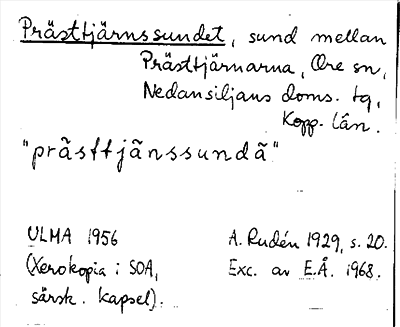 Prästtjärnssundet, sund mellan
Prästtjärnarna, Ore sn,
Nedansiljans doms. tg,
Kopp. län.
"prästtjänssundä"
ULMA 1956
(Xerokopia i SOA,
särsk. kapsel).
A. Rudén 1929, s. 20.
Exc. av E.Å. 1968.